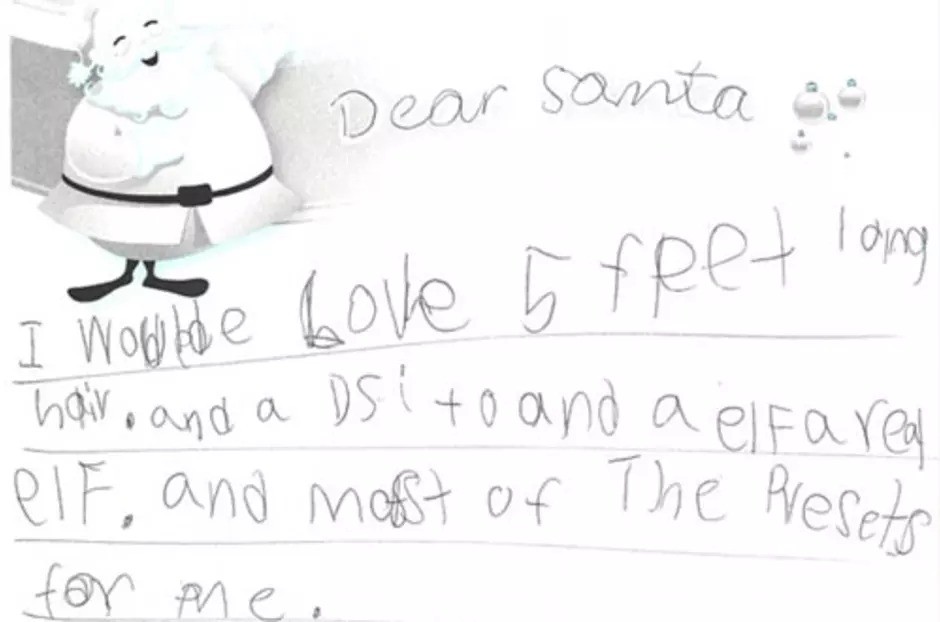 Dear Santa
I Woulde Love 5 feet long
hair. and a DSi to and a elf a real
elf. and most of The Presets
for me.